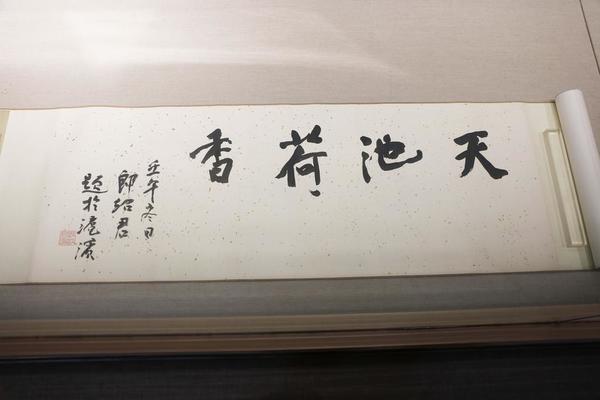 天池荷香
壬午冬日
郎紹君
題於滬濱